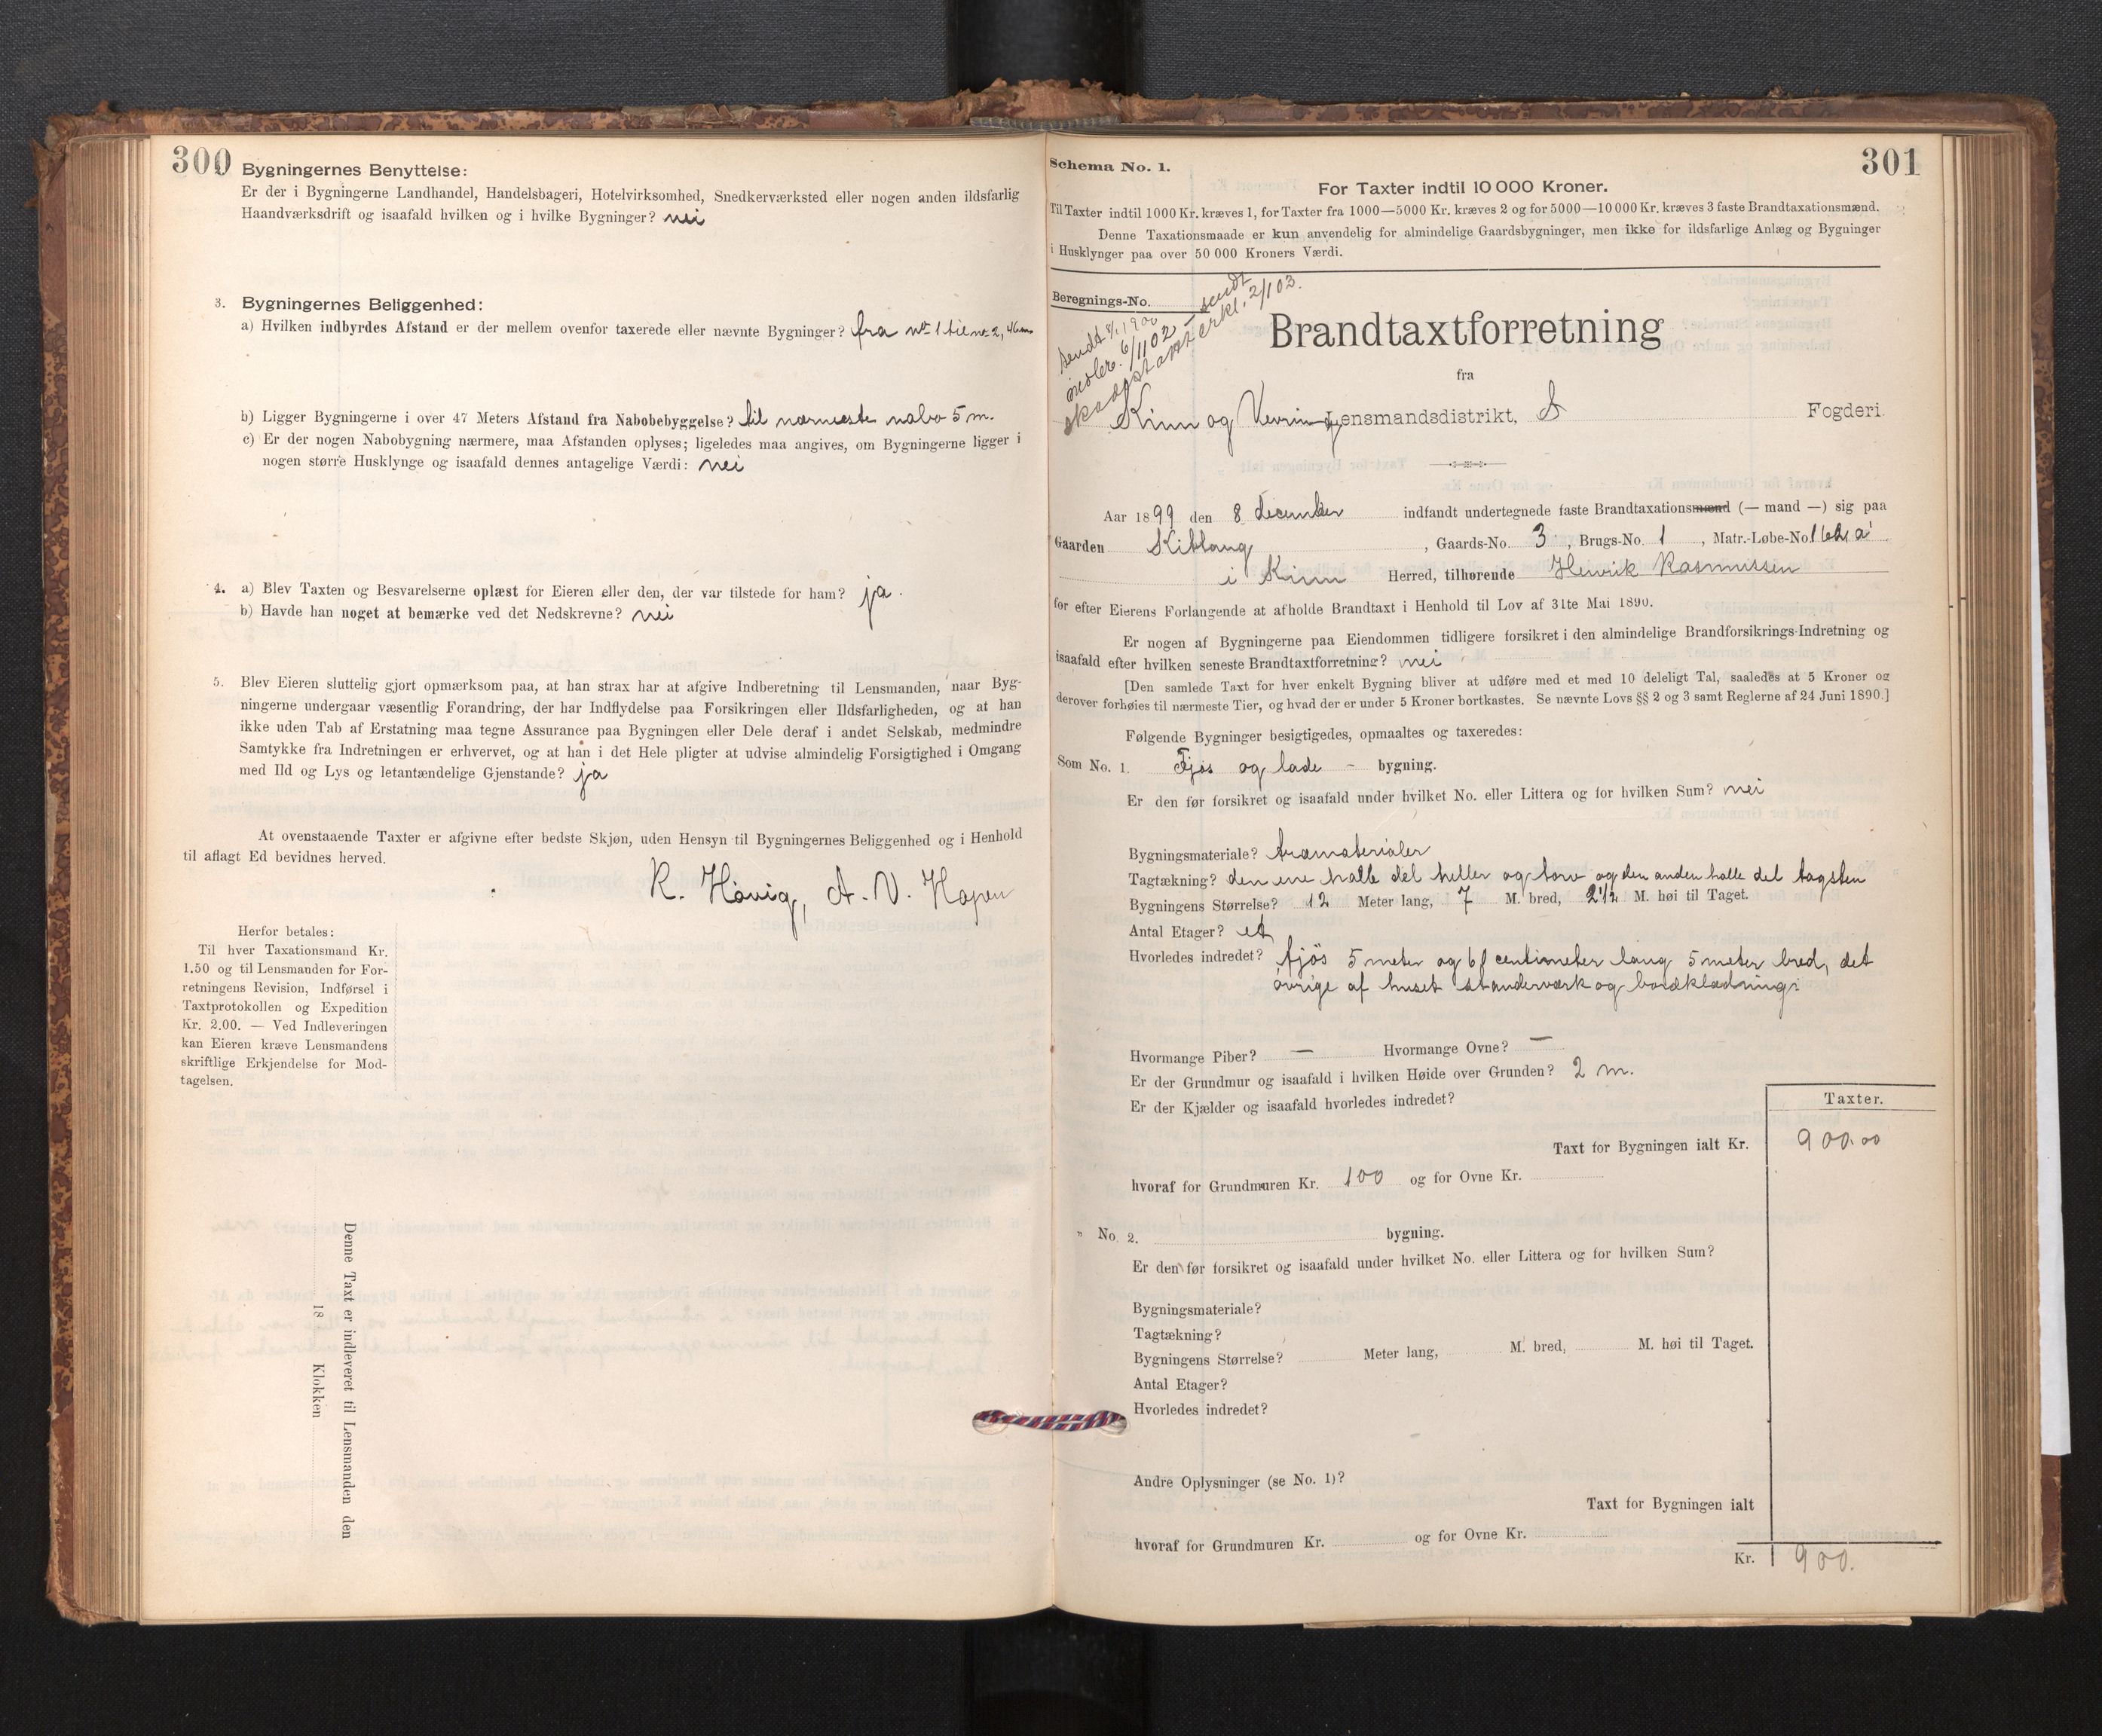 300
Bygningernes Benyttelse:
Er der i Bygningerne Landhandel, Handelsbageri, Hotelvirksomhed, Snedkerværksted eller nogen anden ildsfarlig
Haandværksdrift og isaafald hvilken og i hvilke Bygninger? nei
3. Bygningernes Beliggenhed:
a) Hvilken indbyrdes Afstand er der mellem ovenfor taxerede eller nævnte Bygninger? fra no 1 til no 2,
b) Ligger Bygningerne i over 47 Meters Afstand fra Nabobebyggelse? til nærmeste nabo 5 m.
c) Er der nogen Nabobygning nærmere, maa Afstanden oplyses; ligeledes maa angives, om Bygningerne ligger i
nogen større Husklynge og isaafald dennes antagelige Værdi: nei
4. a) Blev Taxten og Besvarelserne oplæst for Eieren eller den, der var tilstede for ham? ja.
b) Havde han noget at bemærke ved det Nedskrevne? nei
5. Blev Eieren sluttelig gjort opmærksom paa, at han strax har at afgive Indberetning til Lensmanden, naar Byg-
ningerne undergaar væsentlig Forandring, der har Indflydelse paa Forsikringen eller Ildsfarligheden, og at han
ikke uden Tab af Erstatning maa tegne Assurance paa Bygningen eller Dele deraf i andet Selskab, medmindre
Samtykke fra Indretningen er erhvervet, og at han i det Hele pligter at udvise almindelig Forsigtighed i Omgang
med Ild og Lys og letantændelige Gjenstande? ja
At ovenstaaende Taxter er afgivne efter bedste Skjøn, uden Hensyn til Bygningernes Beliggenhed og i Henhold
til aflagt Ed bevidnes herved.
R. Hovig, A. V. Hopen
Herfor betales:
Til hver Taxationsmand Kr.
1.50 og til Lensmanden for For-
retningens Revision, Indførsel i
Taxtprotokollen og Expedition
Kr. 2.00. — Ved Indleveringen
kan Eieren kræve Lensmandens
skriftlige Erkjendelse for Mod-
tagelsen.
Denne Taxt er indleveret til Lensmanden den
18 Klokken
301
Schema No. 1.
For Taxter indtil 10 000 Kroner.
Til Taxter indtil 1000 Kr. kræves 1, for Taxter fra 1000—5000 Kr. kræves 2 og for 5000—10 000 Kr. kræves 3 faste Brandtaxationsmænd.
Denne Taxationsmaade er kun anvendelig for almindelige Gaardsbygninger, men ikke for ildsfarlige Anlæg og Bygninger
i Husklynger paa over 50 000 Kroners Værdi.
Beregnings-No.
sendt 8/1 1900
6/11 02 – sendt
2/1 03.
Brandtaxtforretning
fra
Kinn og Vevring Lensmandsdistrikt, S Fogderi.
Aar 1899 den 8 december indfandt undertegnede faste Brandtaxationsmænd (— mand —) sig paa
Gaarden , Gaards-No. 3 , Brugs-No. 1 , Matr.-Løbe-No.
i Kinn Herred, tilhørende Henrik Rasmussen
for efter Eierens Forlangende at afholde Brandtaxt i Henhold til Lov af 31te Mai 1890.
Er nogen af Bygningerne paa Eiendommen tidligere forsikret i den almindelige Brandforsikrings-Indretning og
isaafald efter hvilken seneste Brandtaxtforretning? nei
[Den samlede Taxt for hver enkelt Bygning bliver at udføre med et med 10 deleligt Tal, saaledes at 5 Kroner og
derover forhøies til nærmeste Tier, og hvad der er under 5 Kroner bortkastes. Se nævnte Lovs §§ 2 og 3 samt Reglerne af 24 Juni 1890.]
Følgende Bygninger besigtigedes, opmaaltes og taxeredes:
Som No. 1. Fjøs og lade – bygning.
Er den før forsikret og isaafald under hvilket No. eller Littera og for hvilken Sum? nei
Bygningsmateriale? træmaterialer
Tagtækning? den ene halve del heller og torv og den anden halve del tagsten
Bygningens Størrelse? 12 Meter lang, 7 M. bred, 2½ M. høi til Taget.
Antal Etager? et
Hvorledes indredet? fjøs 5 meter og centimeter lang 5 meter bred, det
øvrige af huset standerværk og bordklædning.
Hvormange Piber? — Hvormange Ovne? —
Er der Grundmur og isaafald i hvilken Høide over Grunden? 2 m.
Er der Kjælder og isaafald hvorledes indredet?
Taxter.
Taxt for Bygningen ialt Kr. 900.00
hvoraf for Grundmuren Kr. 100 og for Ovne Kr.
" No. 2. bygning.
Er den før forsikret og isaafald under hvilket No. eller Littera og for hvilken Sum?
Bygningsmateriale?
Tagtækning?
Bygningens Størrelse? Meter lang, M. bred, M. høi til Taget.
Antal Etager?
Hvorledes indredet?
Andre Oplysninger (se No. 1)?
Taxt for Bygningen ialt
hvoraf for Grundmuren Kr. og for Ovne Kr.
Kr. 900.